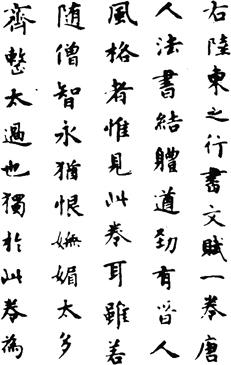 右陸柬之行書文賦一卷唐
人法書結體遒勁有晉人
風格者惟見此卷耳雖若
隨僧智永猶恨嫵媚太多
齊整太過也獨於此卷為